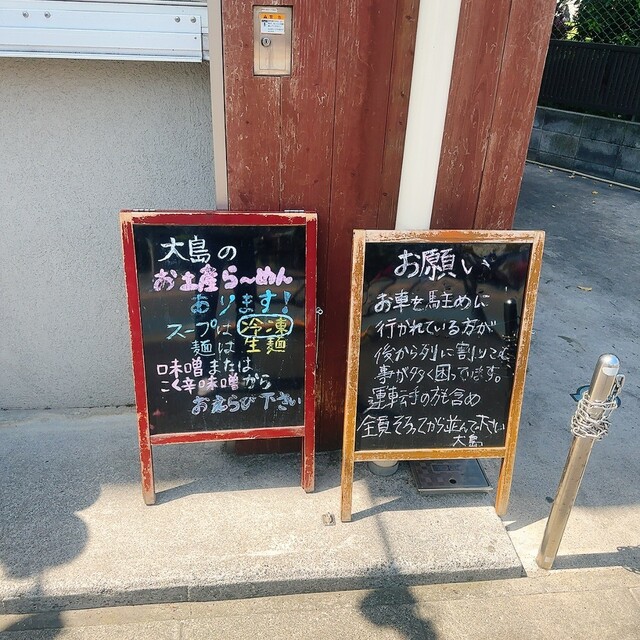 大島の
お土産ら〜めん
あります!
スープは冷凍
麺は生麺
味噌または
こく辛味噌から
お選らび下さい
お願い
お車を駐めに
行かれている方が
後から列に割りこむ
事が多く困ってます。
運転手の方も含め
全員そろってから並んで下さい
大島